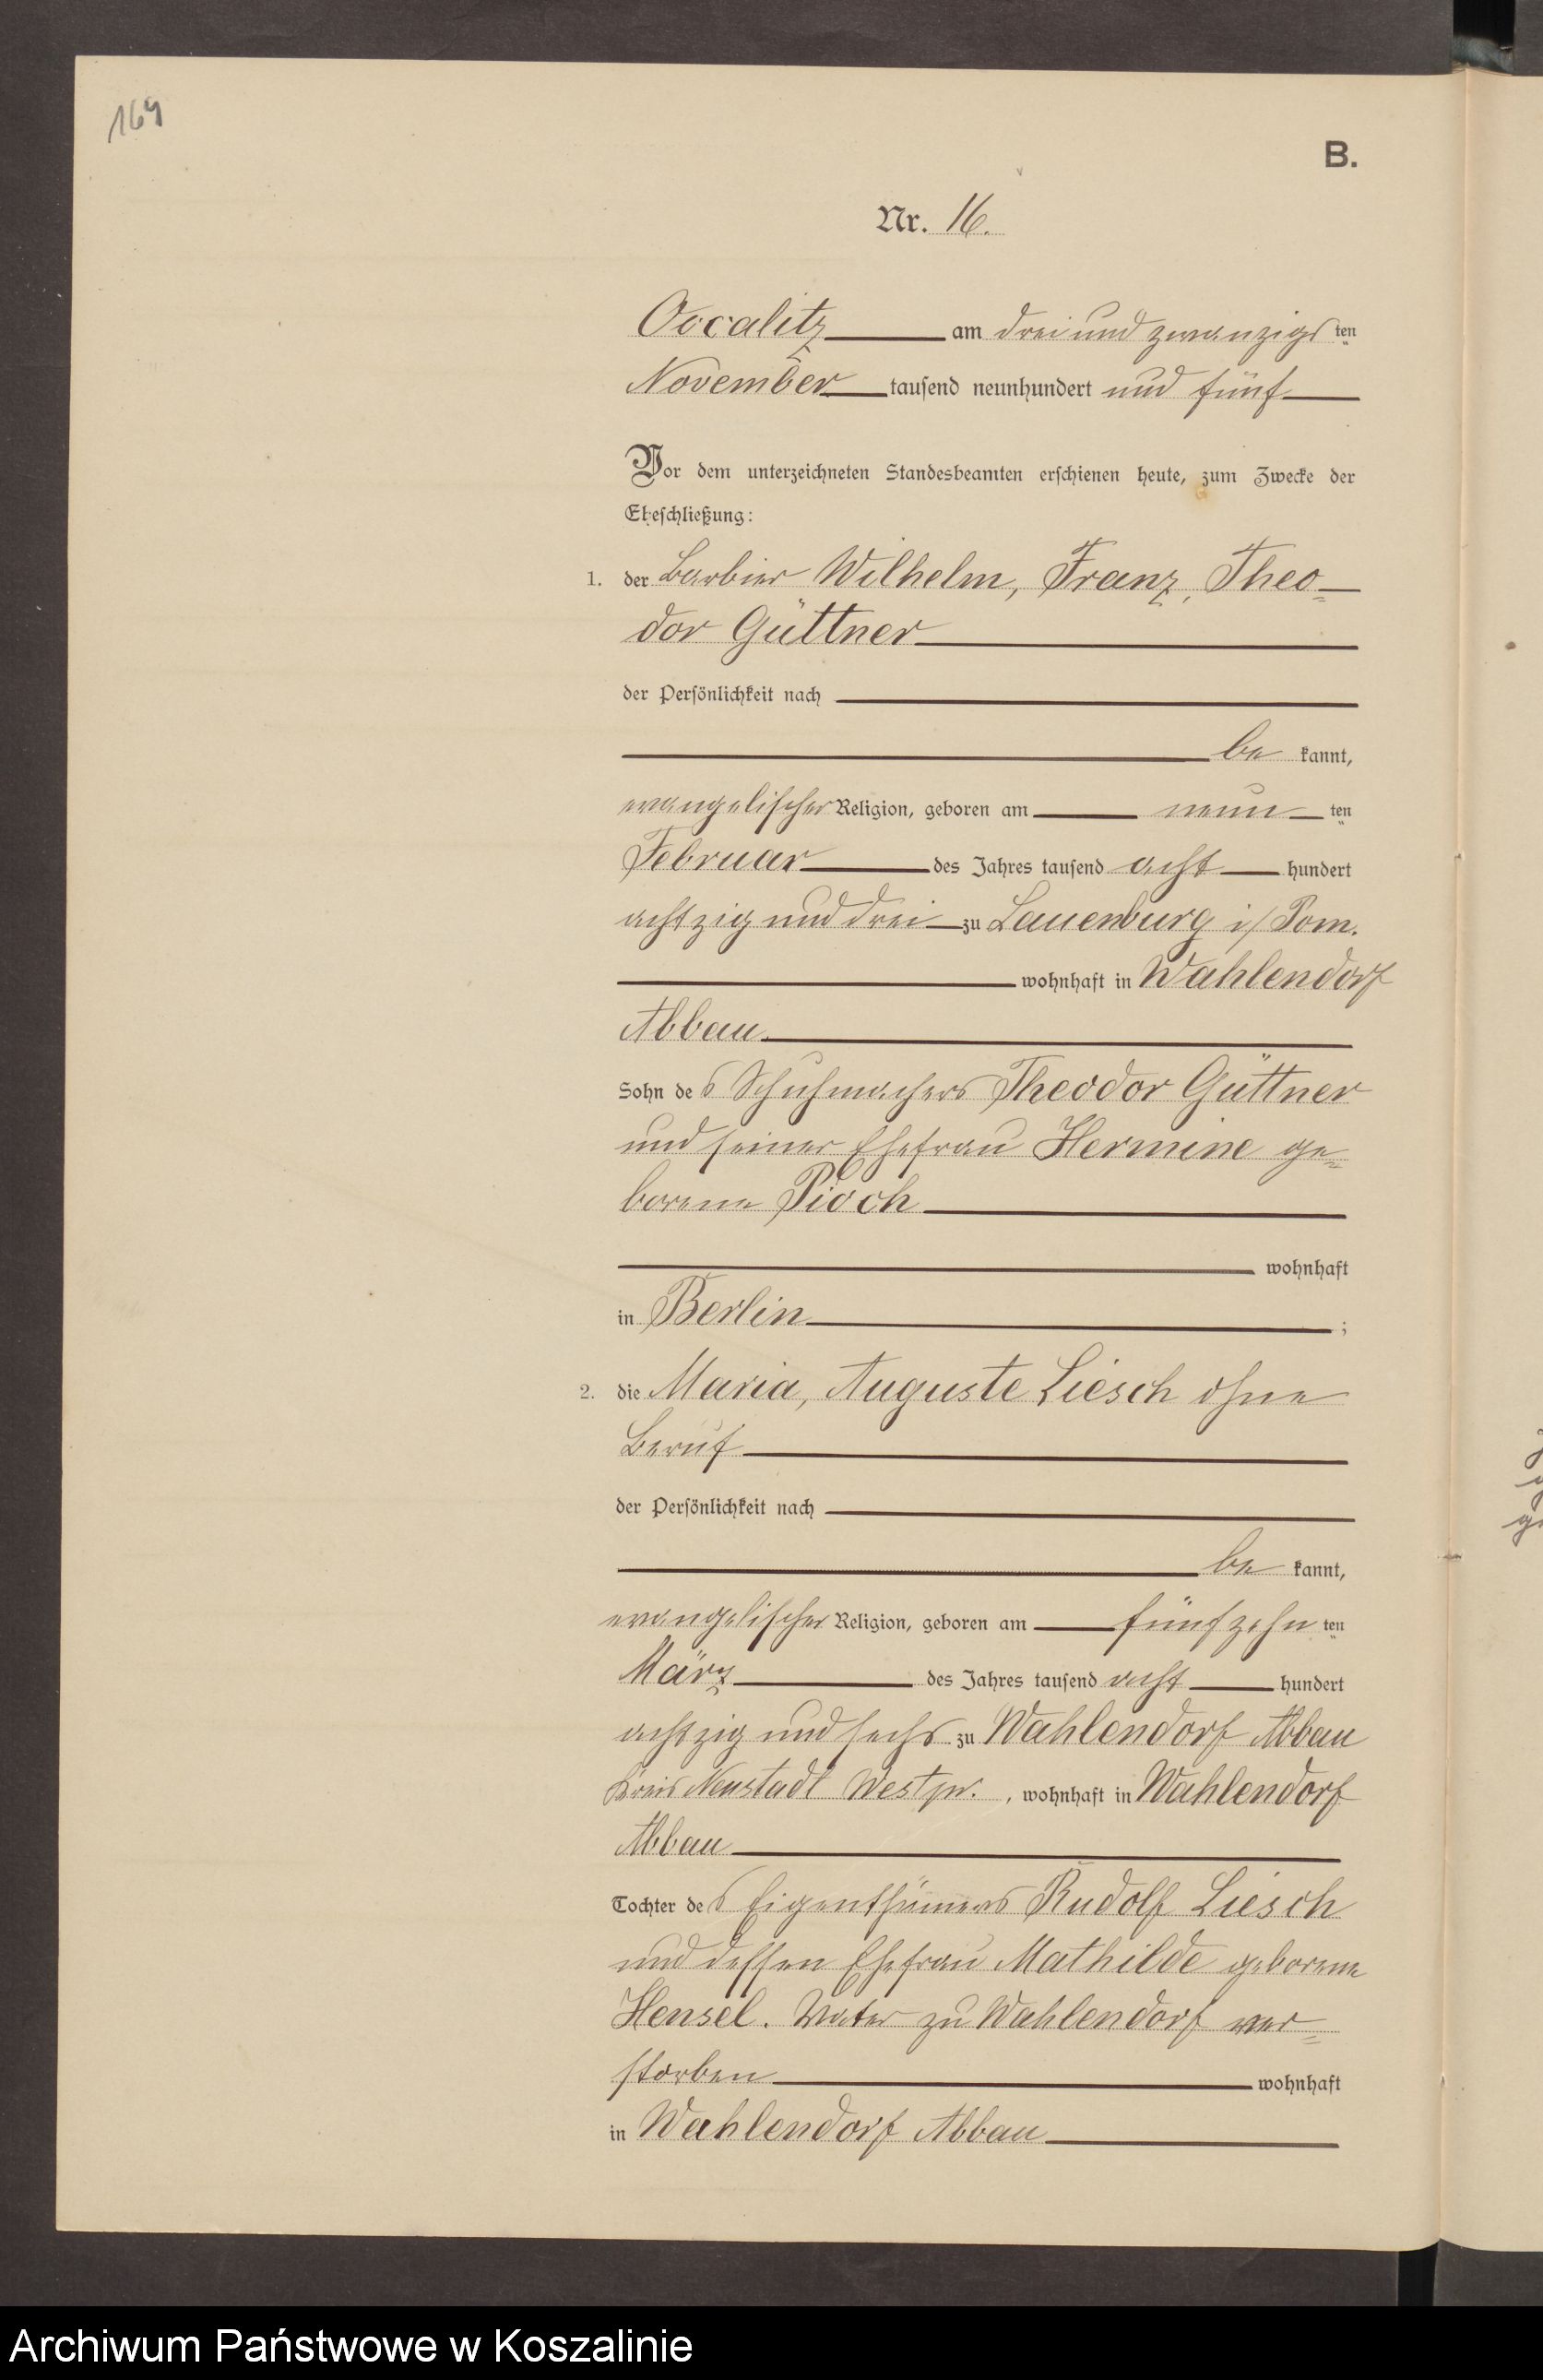 164
B.
Nr. 16.
Occalitz am drei und zwanzigsten
November tausend neunhundert und fünf
Vor dem unterzeichneten Standesbeamten erschienen heute, zum Zwecke der
Eheschließung:
1. der Barbier Wilhelm, Franz, Theo-
dor Güttner
der Persönlichkeit nach
be kannt,
evangelischer Religion, geboren am neun ten
Februar des Jahres tausend acht hundert
achtzig und drei zu Lauenburg i/Pom.
wohnhaft in Wahlendorf
Abbau
Sohn des Schuhmachers Theodor Güttner
und seiner Ehefrau Hermine ge-
borene Pioch
wohnhaft
in Berlin ;
2. die Maria, Auguste Liesch ohne
Beruf
der Persönlichkeit nach
be kannt,
evangelischer Religion, geboren am fünfzehn ten
März des Jahres tausend acht hundert
achtzig und sechs zu Wahlendorf Abbau
Kreis Neustadt Westpr. , wohnhaft in Wahlendorf
Abbau
Tochter des Eigenthümers Rudolf Liesch
und dessen Ehefrau Mathilde geborene
Hensel. Vater zu Wahlendorf ver-
storben wohnhaft
in Wahlendorf Abbau
Archiwum Państwowe w Koszalinie